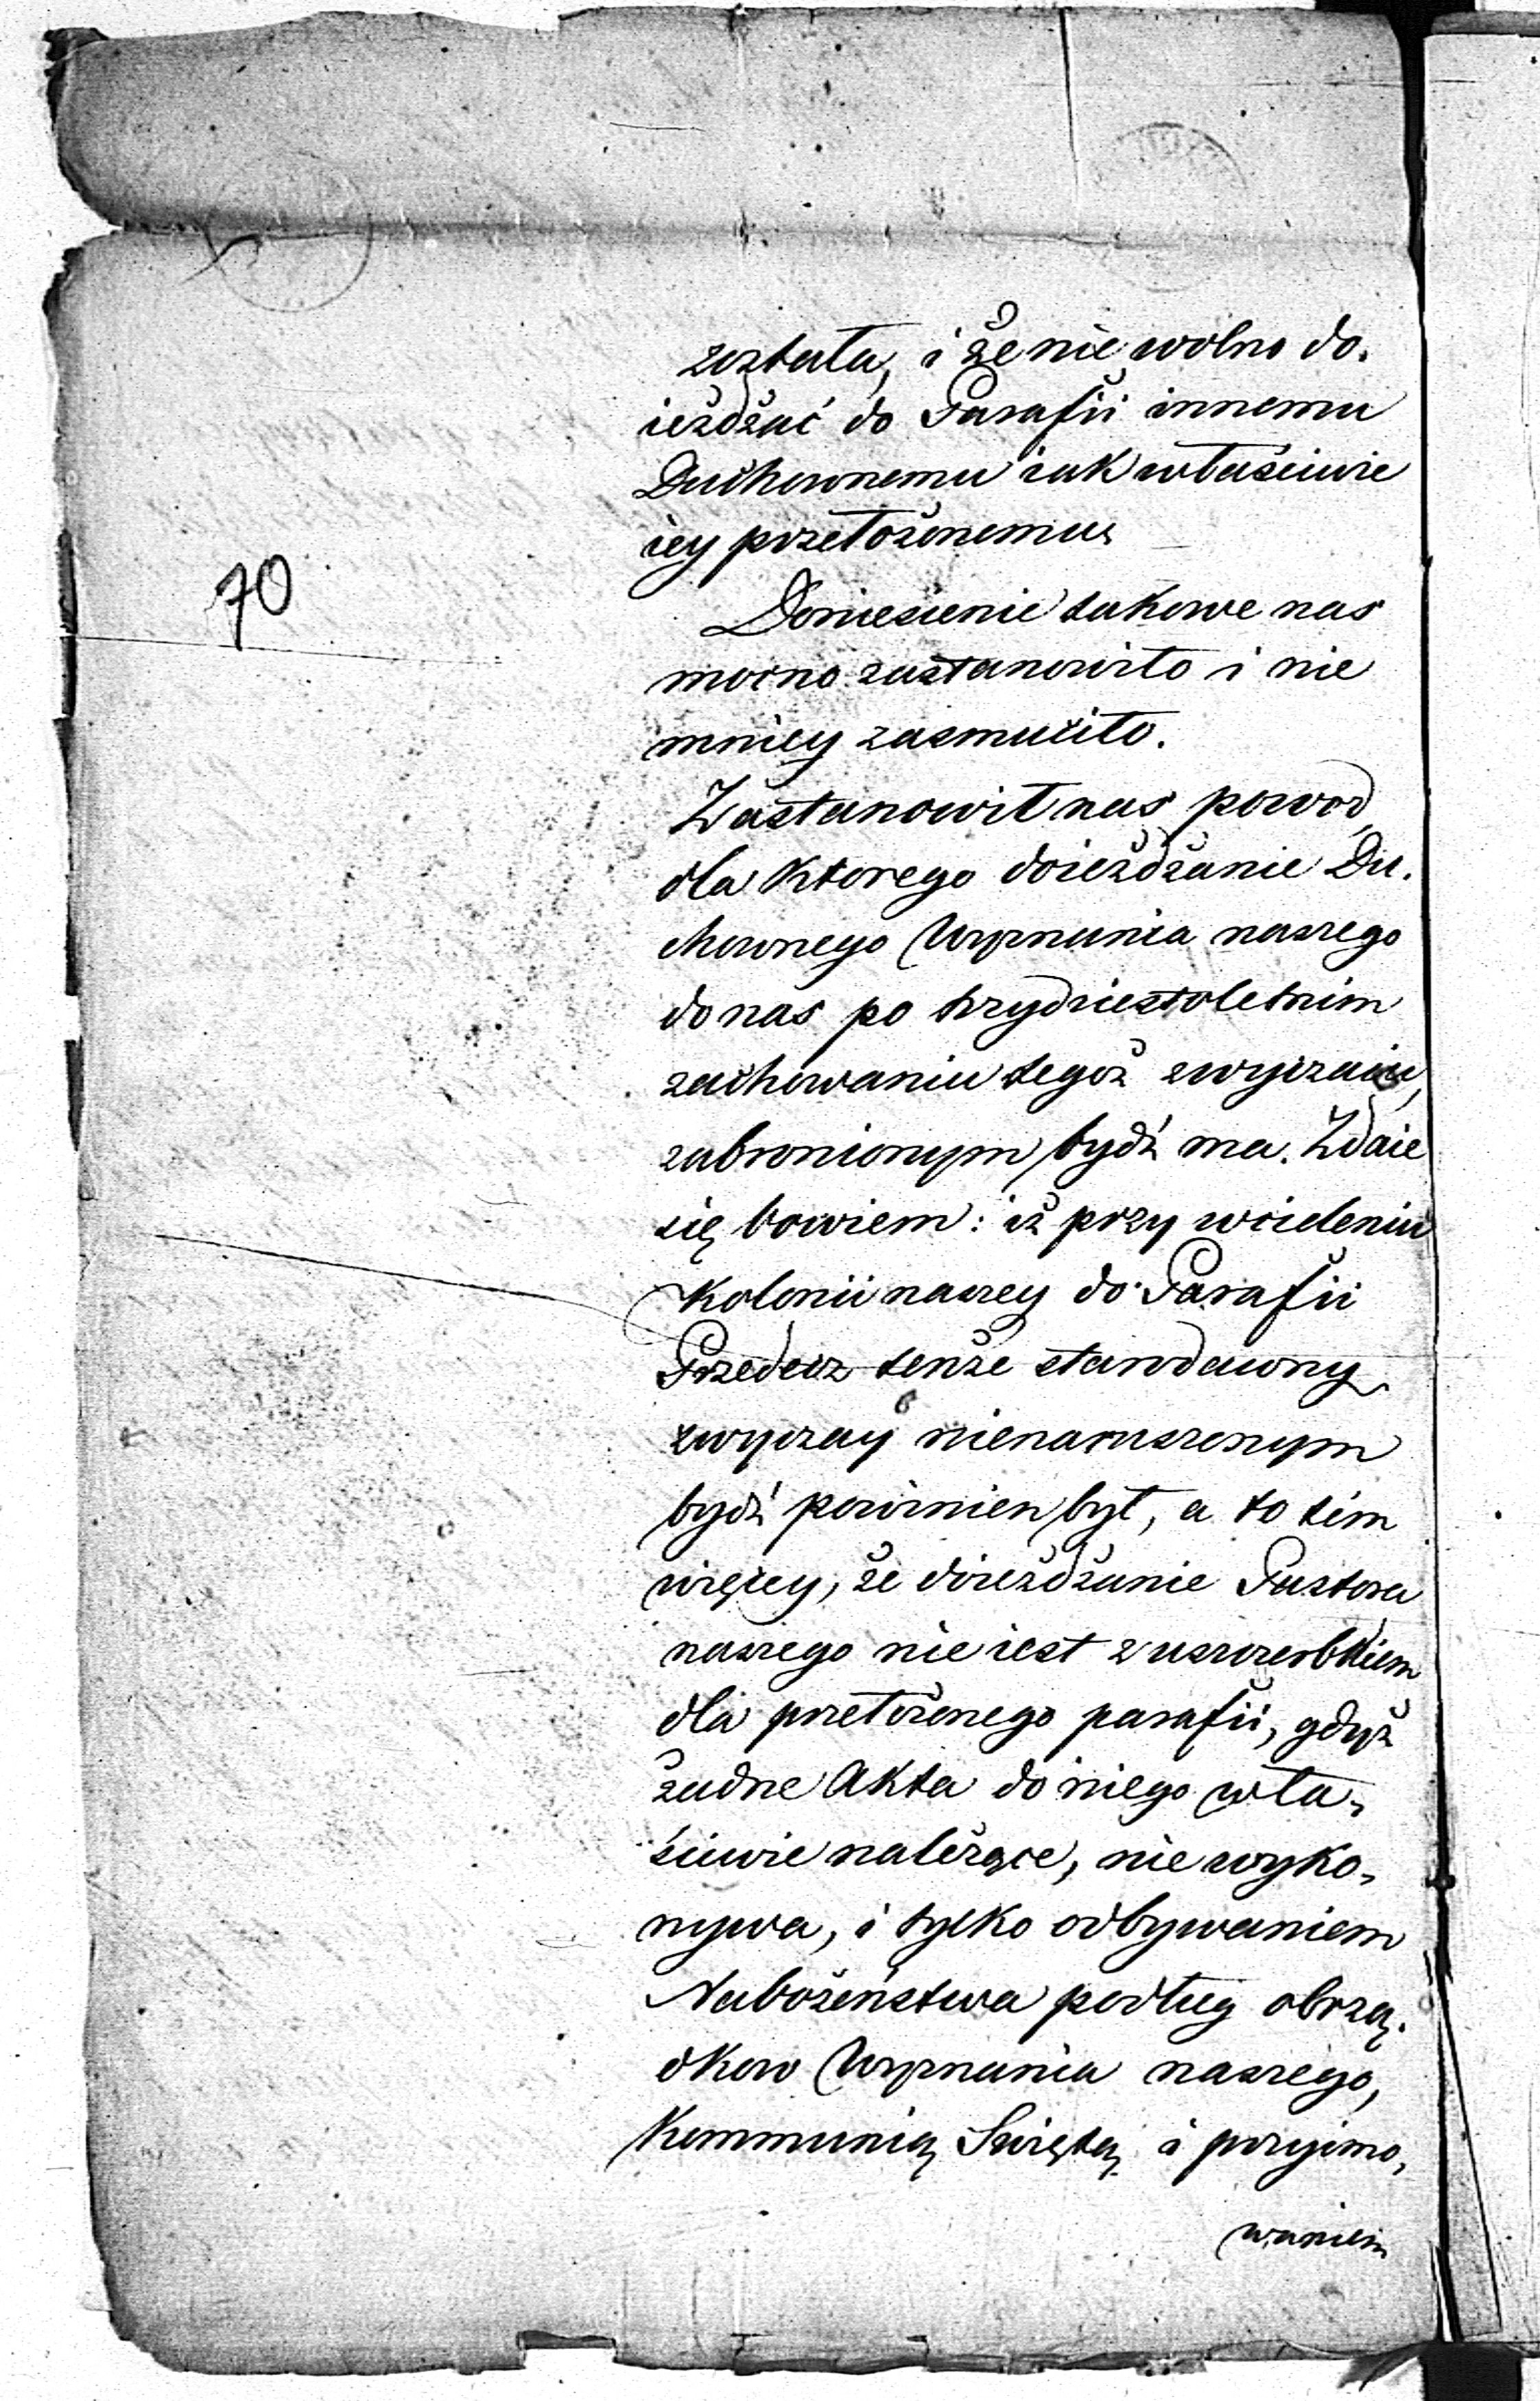 została, i że nie wolno do-
ieżdżać do Parafii innemu
Duchownemu iak właściwie
iey przełożonemu.
70
Doniesienie takowe nas
mocno zastanowiło i nie
mniey zasmuciło.
Zastanowił nas powod,
dla ktorego doieżdżanie Du-
chownego Wyznania naszego
do nas po trzydziestoletnim
zachowaniu tegoż zwyczaiu,
zabronionym bydź ma. Zdaie
się bowiem: iż przy wcieleniu
Kolonii naszey do Parafii
Przedecz tenże starodawny
zwyczay nienaruszonym
bydź powinien był, a to tém
więcey, że doieżdżanie Pastora
naszego nie iest z uszczerbkiem
dla przełożonego parafii, gdyż
żadne Akta do niego wła-
ściwie należące, nie wyko-
nywa, i tylko odbywaniem
Nabożeństwa podług obrzą-
dkow Wyznania naszego,
Kommunią Swiętą i przyimo-
waniem